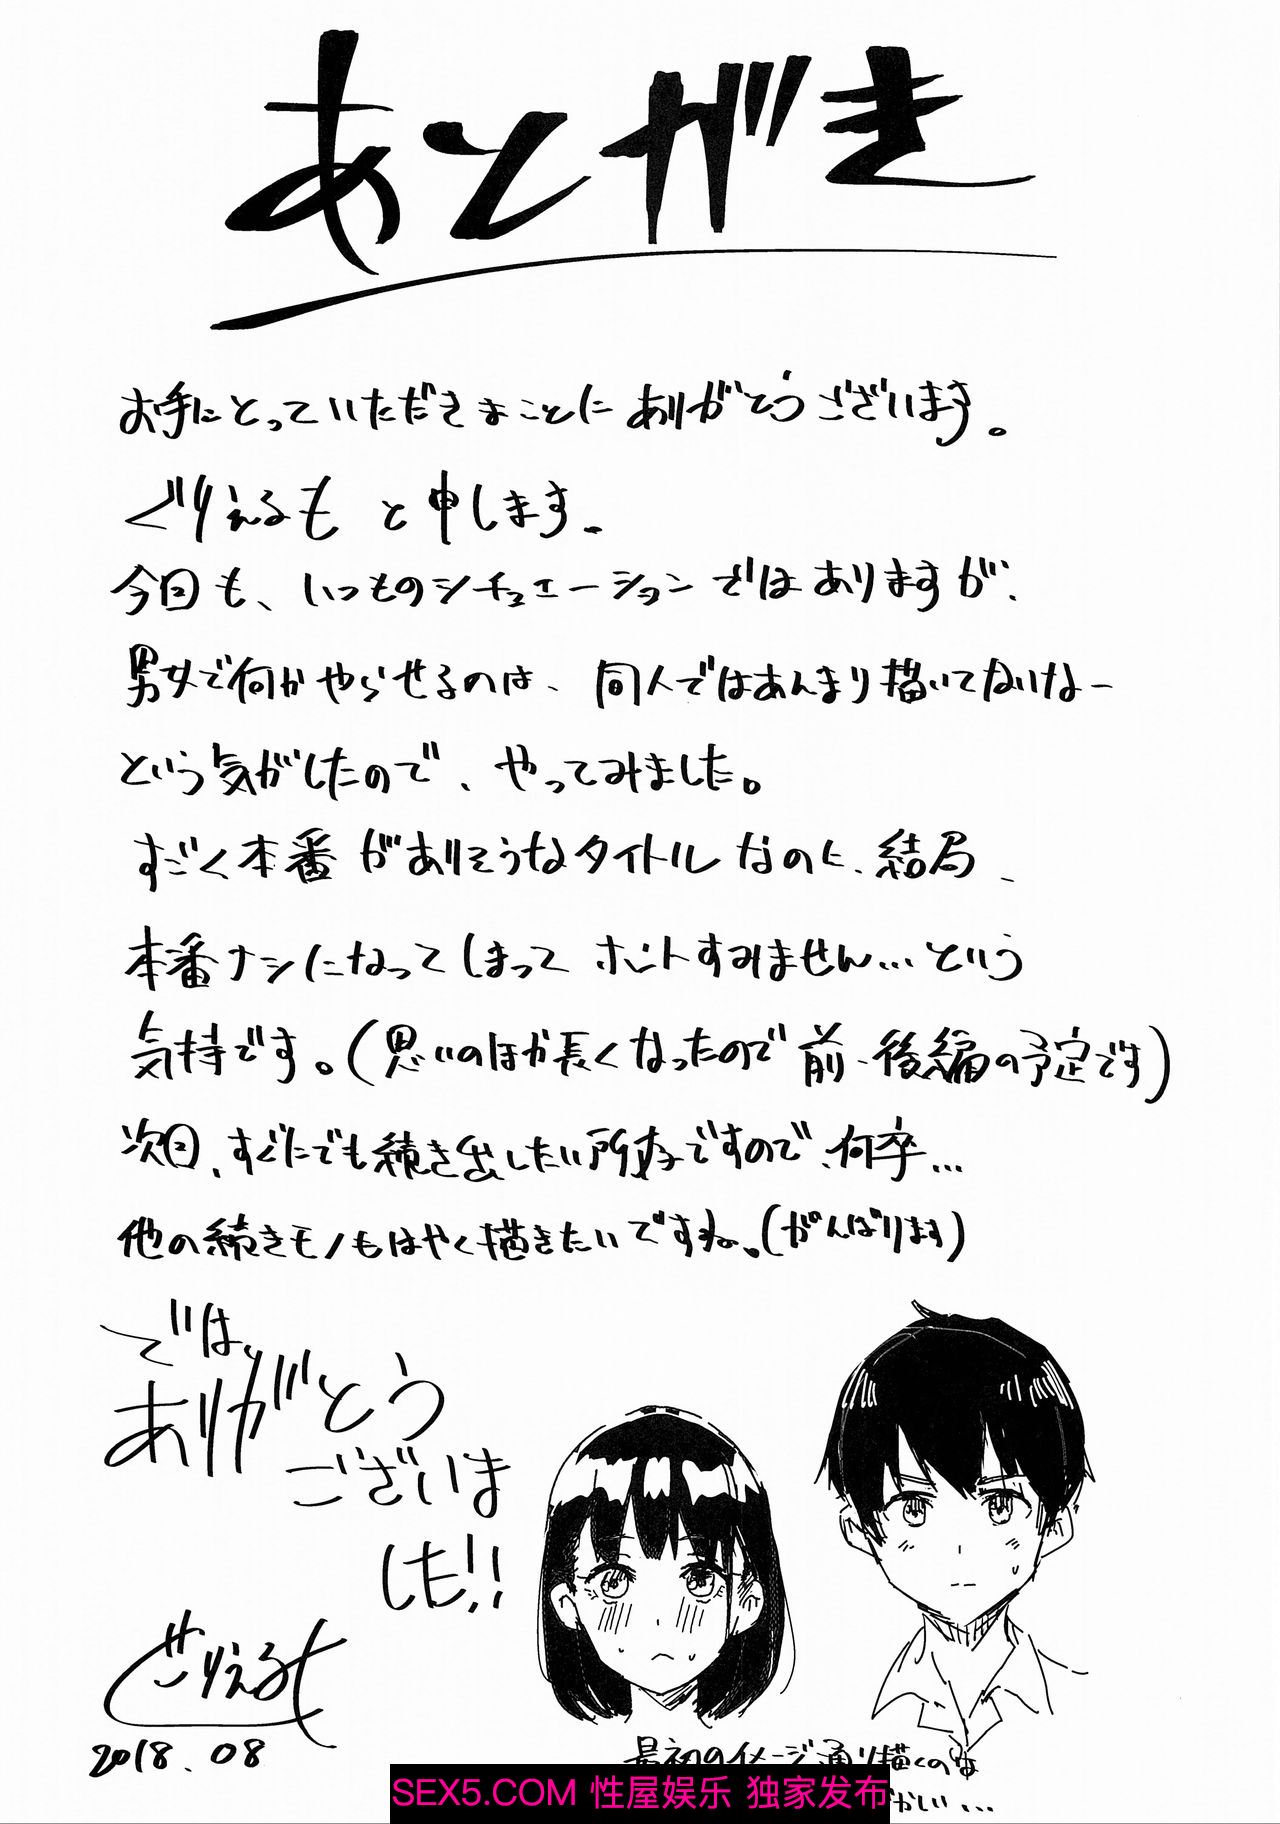 あとがき
お手にとっていただきまことにありがとうございます。
ぐりえるも と申します。
今回も、いつものシチュエーションではありますが、
男女で何かやらせるのは、同人ではあんまり描いてないなー
という気がしたので、やってみました。
すごく本番がありそうなタイトルなのに、結局、
本番ナシになってしまってホントすみません…という
気持です。(思いのほか長くなったので前・後編の予定です)
次回、すぐにでも続き出したい所存ですので、何卒…
他の続きモノもはやく描きたいですね。(がんばります)
では、
ありがとう
ございま
した!!
ぐりえるも
2018.08
最初のイメージ通り描くのは
かしい…
SEX5.COM 性屋娱乐 独家发布